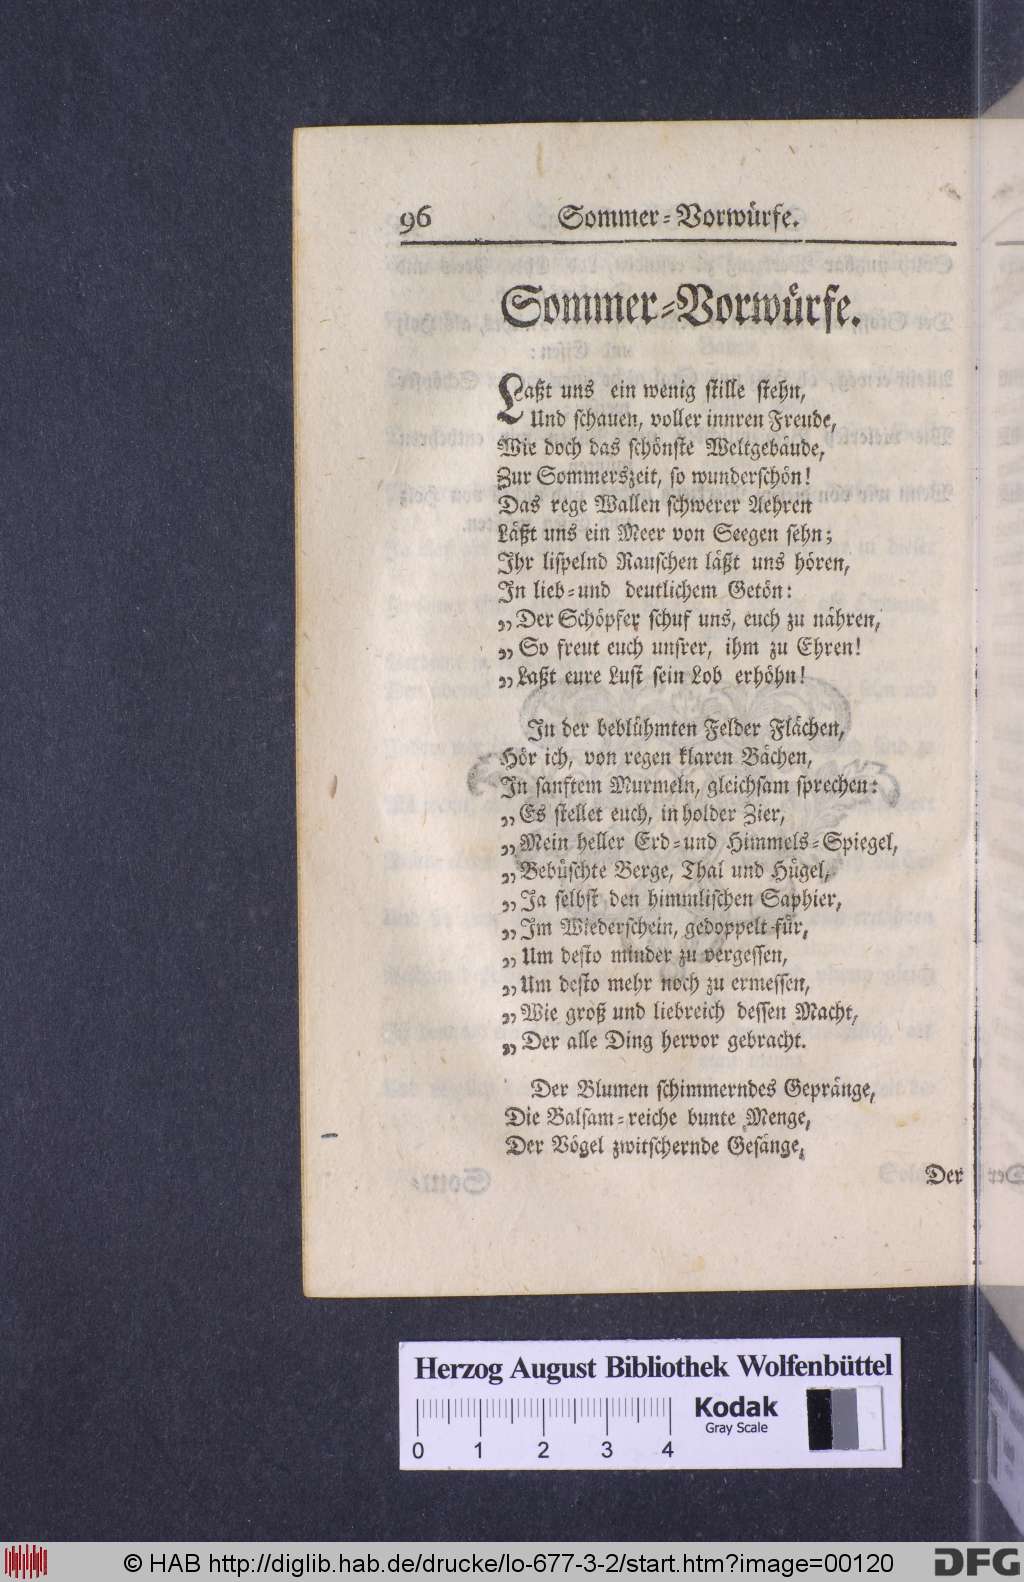 96 Sommer-Vorwürfe.
Sommer-Vorwürfe.
Laßt uns ein wenig stille stehn,
Und schauen, voller innren Freude,
Wie doch das schönste Weltgebäude,
Zur Sommerszeit, so wunderschön!
Das rege Wallen schwerer Aehren
Läßt uns ein Meer von Seegen sehn;
Ihr lispelnd Rauschen läßt uns hören,
In lieb-und deutlichem Getön:
„Der Schöpfer schuf uns, euch zu nähren,
„So freut euch unsrer, ihm zu Ehren!
„Laßt eure Lust sein Lob erhöhn!
In der beblühmten Felder Flächen,
Hör ich, von regen klaren Bächen,
In sanftem Murmeln, gleichsam sprechen:
„Es stellet euch, in holder Zier,
„Mein heller Erd-und Himmels-Spiegel,
„Bebüschte Berge, Thal und Hügel,
„Ja selbst den himmlischen Saphier,
„Im Wiederschein, gedoppelt für,
„Um desto minder zu vergessen,
„Um desto mehr noch zu ermessen,
„Wie groß und liebreich dessen Macht,
„Der alle Ding hervor gebracht.
Der Blumen schimmerndes Gepränge,
Die Balsam-reiche bunte Menge,
Der Vögel zwitschernde Gesänge,
Der
Herzog August Bibliothek Wolfenbüttel
Kodak
Gray Scale
0 1 2 3 4
© HAB http://diglib.hab.de/drucke/lo-677-3-2/start.htm?image=00120
DFG